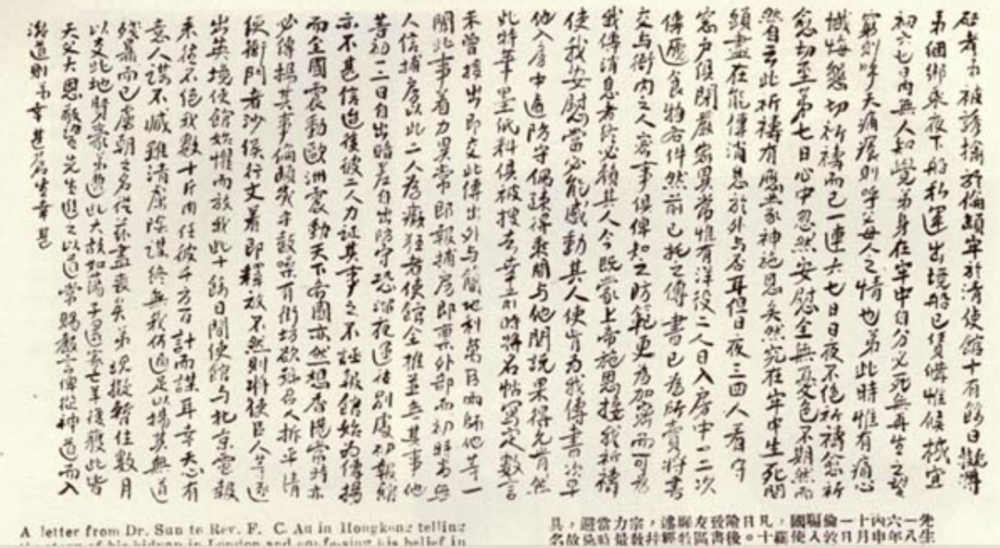 啟者弟被誘擒於倫頓牢於清使館十有餘日擬將
弟綑綁乘夜下船私運出境船已賃備惟候機宜
初六七日內無人知覺弟身在牢中自分必死無再生之望
窮則呼天痛癢則呼父母人之情也弟此時惟有痛心
懺悔懇切祈禱而已一連六七日日夜不絕祈禱愈祈
愈切至第七日心中忽然安慰全無憂色不期然而
然自云此祈禱有應蒙神施恩矣然究在牢中生死關
頭盡在能傳消息於外與否耳但日夜三四人看守
窓户俱閉嚴密異常惟有洋役二人日入房中一二次
傳遞食物各件然前已托之傳書已為所賣將書
交與衙內之人密事俱俾知之防範更為加密而可為
我傳消息者終必賴其人今既蒙上帝施恩接我祈禱
使我安慰當必能感動其人使肯為我傳書次早
他入房中適防守偶疎得乘間與他關說果得允肯然
此時筆墨紙料俱被搜去幸前時將名帖寫定數言
未曾搜出即交此傳出外與簡地利萬臣兩師他等一
聞此事着力異常即報捕房即稟外部而初時尚無
人信捕房以此二人為癲狂者使館全推並無其事他
等初一二日自出暗差自出防守恐溜夜運往別處初報館
亦不甚信迨後彼二人力証其事之不誣報館始為傳揚
而全國震動歐洲震動天下各國亦然想香港當時亦
必傳揚其事倫頓幾乎鼓噪有街坊欲號召人拆平清
使衙門者沙侯行文着即釋放不然則將使臣人等逐
出英境使館始懼而放我此十餘日間使館與北京電報
來往不絕我數十斤肉任彼千方百計而謀耳幸天心有
意人謀不臧雖清虜陰謀終無我何適足以揚其無道
殘暴而已虜朝之名從茲盡喪矣弟現擬暫住數月
以交此地賢豪弟遭此大故如蕩子還家亡羊復獲此皆
天父大恩敬望先生進之以道常賜教言俾從神道而入
治道則弟幸甚蒼生幸甚
A letter from Dr. Sun to Rev. F. C. Au in Hongkong telling
the story of his kidnap in London and confessing his belief in